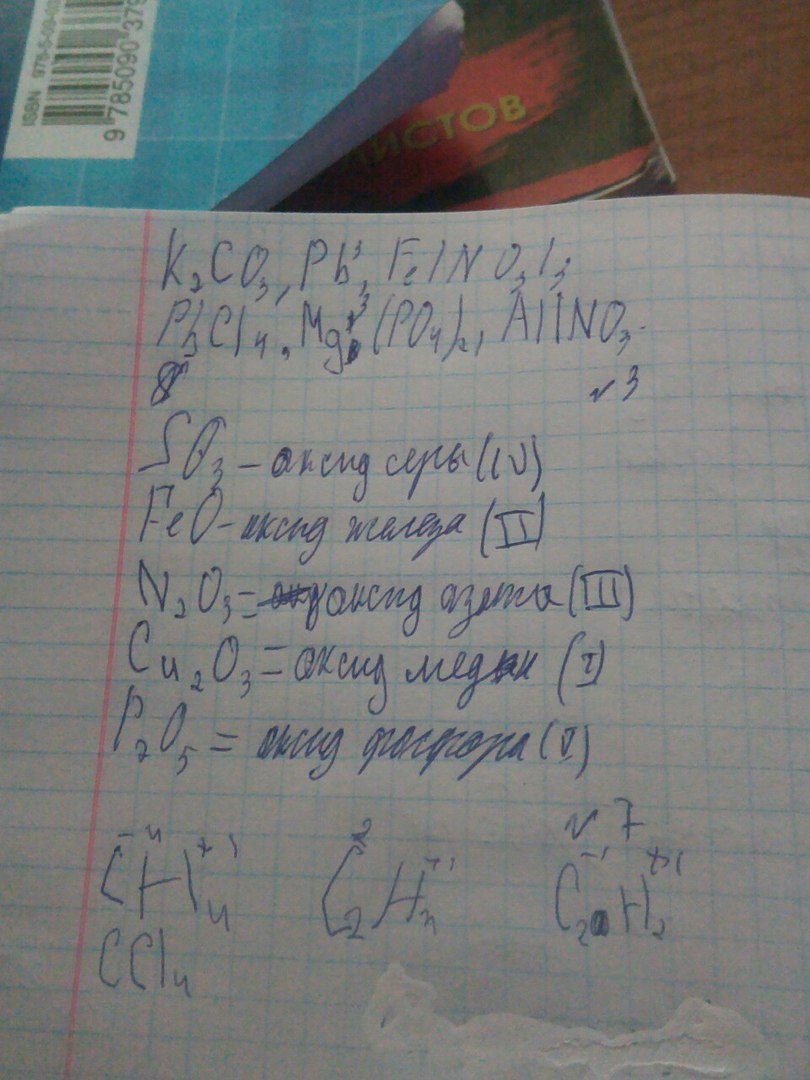 ISBN 978-5-09-0
9 785090 379
ИСТОВ
K₂CO₃, Pb³, Fe(NO₃)₃
PbCl₄, Mg³(PO₄)₂, Al(NO₃
√3
SO₃ – оксид серы (IV)
FeO - оксид железа (II)
N₂O₃ = оксид азота (III)
Cu₂O₃ = оксид меди (I)
P₂O₅ = оксид фосфора (V)
√7
C⁻⁴H⁺¹₄ C²₂H⁺¹₄ C⁻¹₂H⁺¹₂
CCl₄